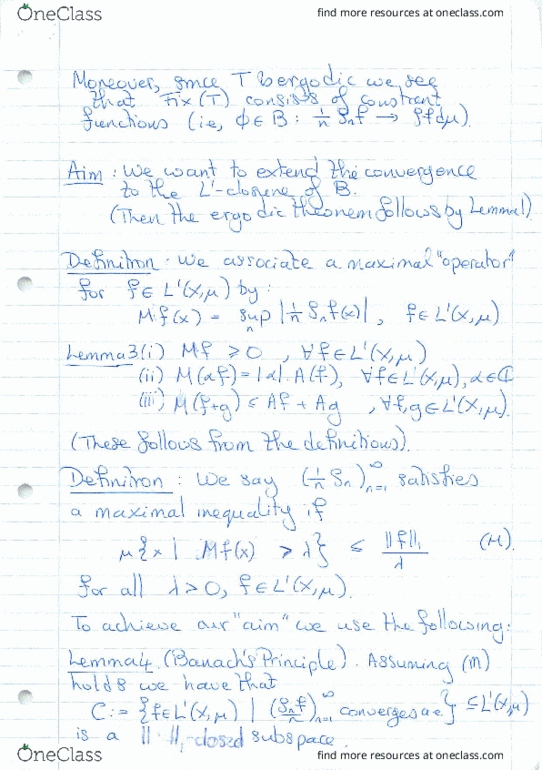 OneClass find more resources at oneclass.com
Moreover, since T is ergodic we see
that Fix(T) consists of constant
functions (i.e, φ ∈ B : 1/n Sₙf → ∫fdμ).
Aim : We want to extend the convergence
to the L¹-closure of B.
(Then the ergodic theorem follows by Lemma 1).
Definition : We associate a maximal "operator"
for f ∈ L¹(X,μ) by:
Mf(x) = sup_n |1/n Sₙf(x)| , f ∈ L¹(X,μ)
Lemma 3 (i) Mf ≥ 0 , ∀f ∈ L¹(X,μ)
(ii) M(αf) = |α| A(f), ∀f ∈ L¹(X,μ), α ∈ ℂ
(iii) M(f+g) ≤ Af + Ag , ∀f,g ∈ L¹(X,μ).
(These follows from the definitions).
Definition : We say (1/n Sₙ)_{n=1}^∞ satisfies
a maximal inequality if
μ{x | Mf(x) > λ} ≤ ||f||₁/λ (M).
for all λ > 0, f ∈ L¹(X,μ).
To achieve our "aim" we use the following:
Lemma 4 (Banach's Principle). Assuming (M)
holds we have that
C := {f ∈ L¹(X,μ) | (Sₙf/n)_{n=1}^∞ converges a.e} ⊆ L¹(X,μ)
is a ||·||₁-closed subspace.
OneClass find more resources at oneclass.com